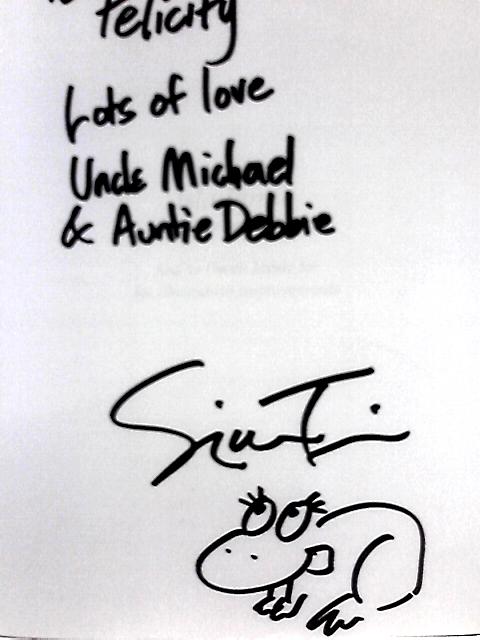 Felicity
Lots of love
Uncle Michael
& Auntie Debbie